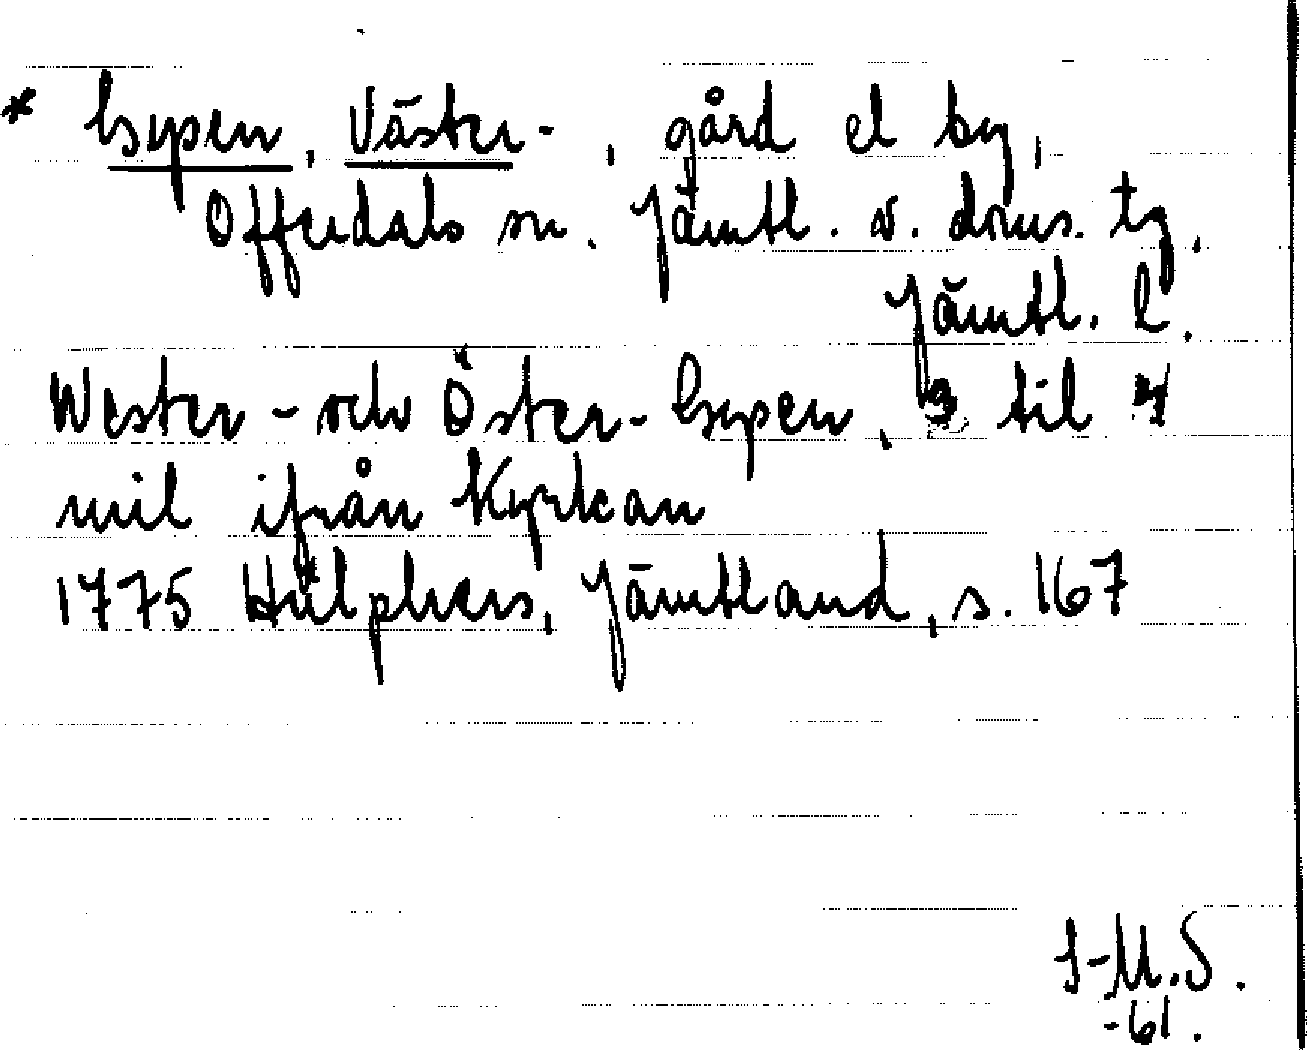 * Gysen, Väster-, gård el by,
Offerdals sn. Jämtl. v. doms. tg,
Jämtl. l.
Wester- och Öster-Gysen, 3 til 4
mil ifrån Kyrkan
1775 Hülphers, Jämtland, s. 167
I-M.S.
-61.